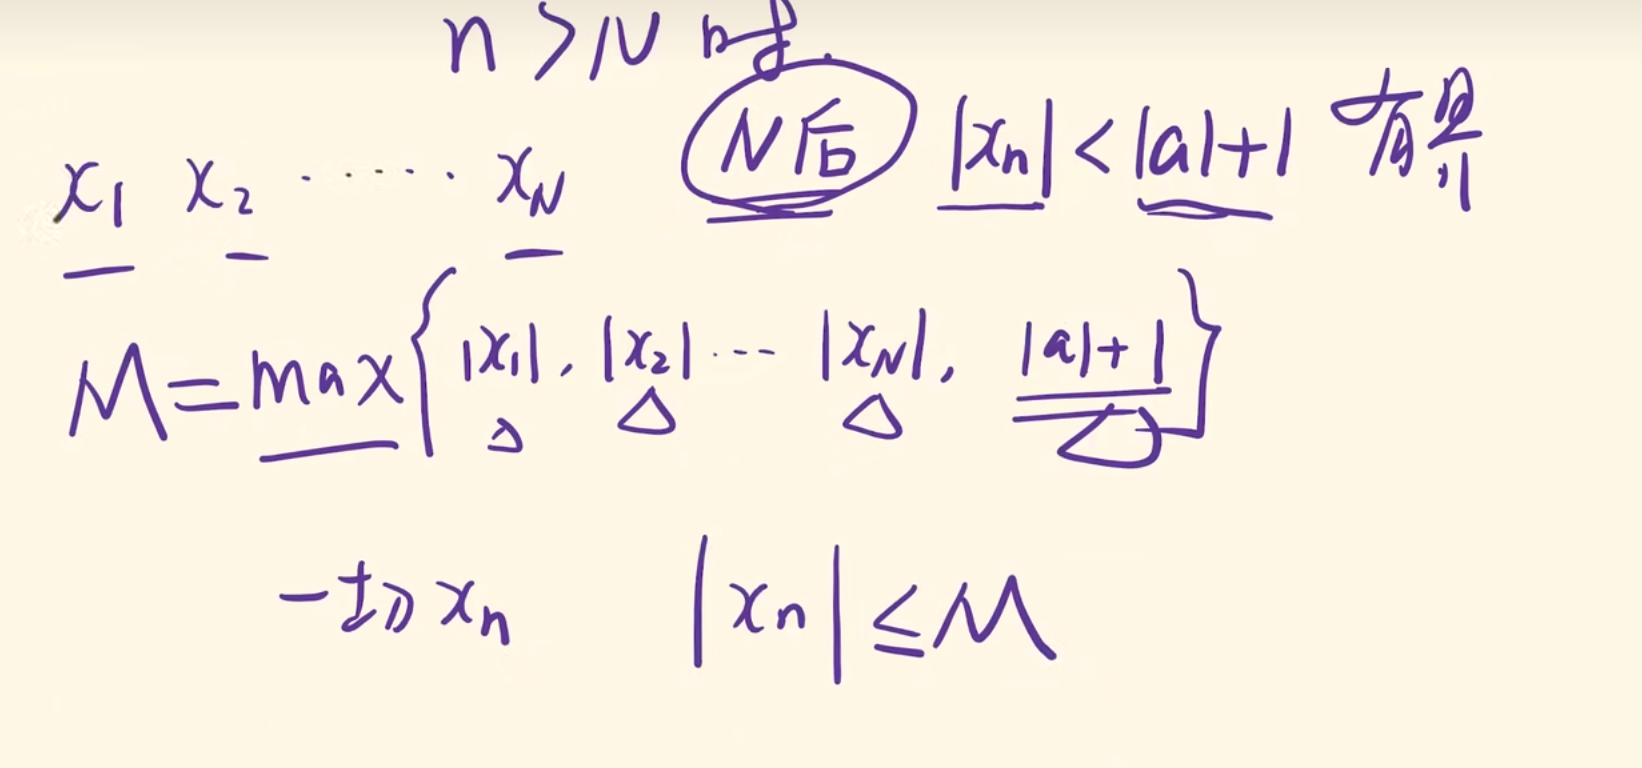 n > N 时.
x₁ x₂ ······ x_N N后 |xₙ| < |a|+1 有界
M = max{|x₁|, |x₂| ··· |x_N|, |a|+1}
一切 xₙ |xₙ| ≤ M